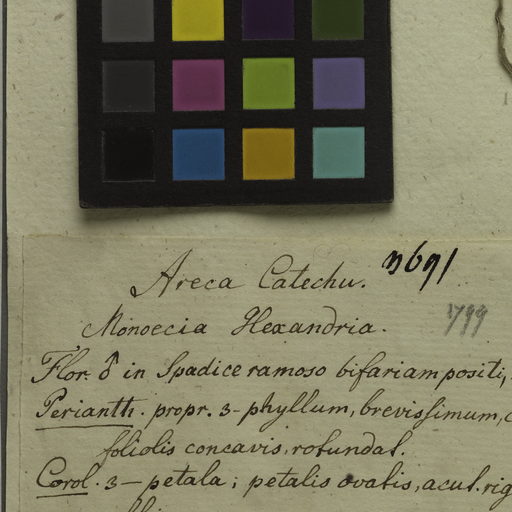 Areca Catechu. 3691
Monoecia Hexandria. 1799
Flor. ♂ in Spadice ramoso bifariam positi,
Perianth. propr. 3-phyllum, brevissimum,
foliolis concavis, rotundat.
Corol. 3-petala; petalis ovatis, acut. rig